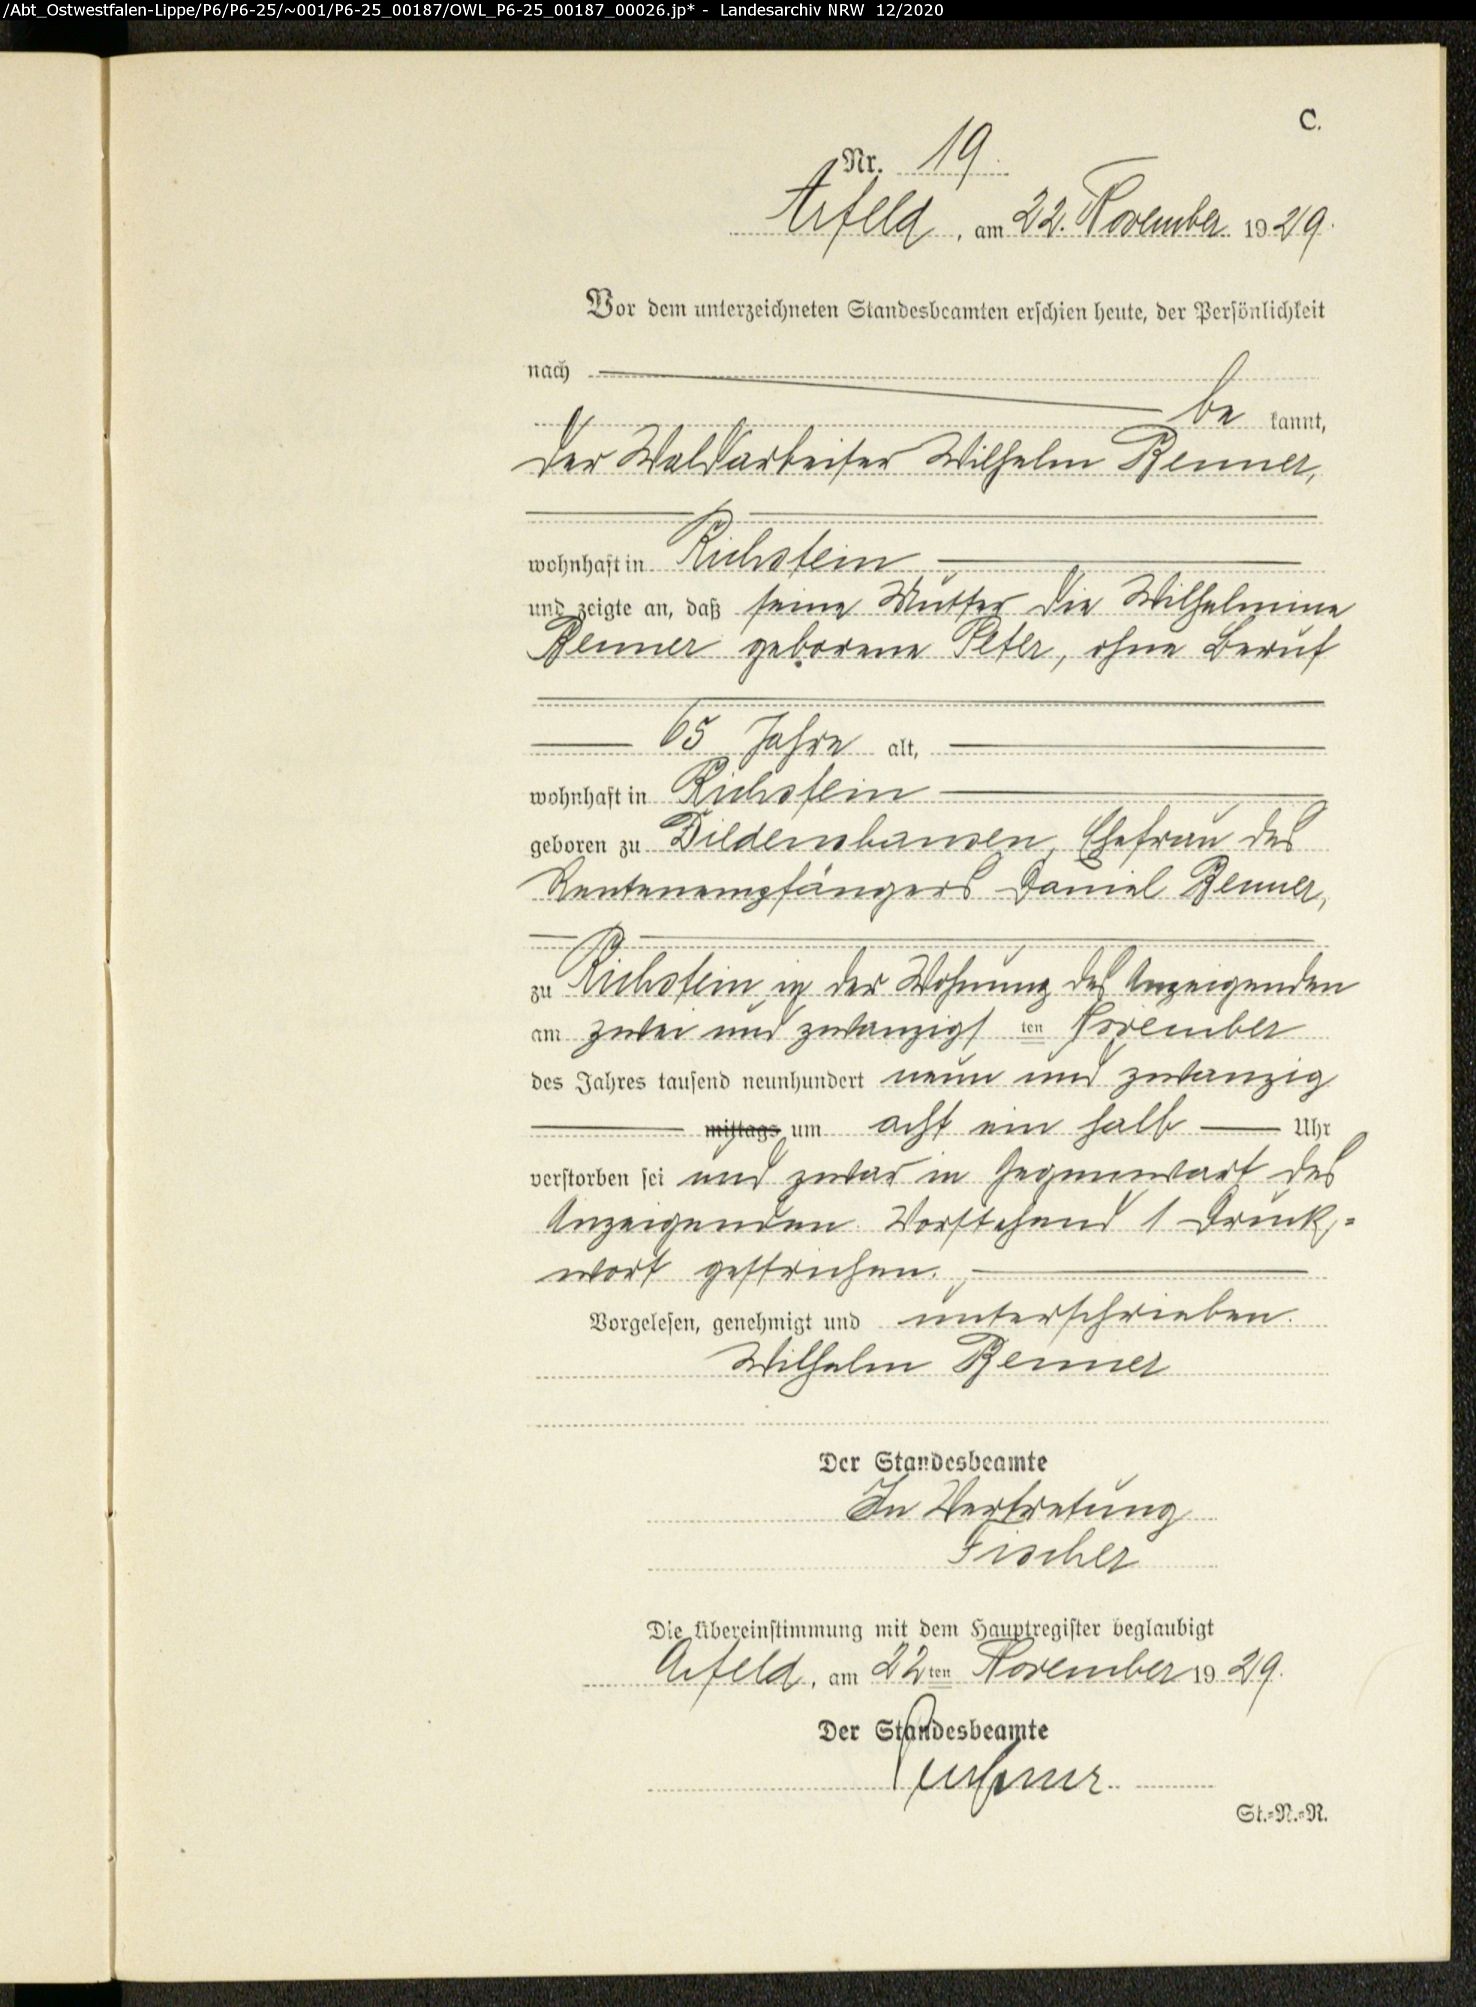 /Abt_Ostwestfalen-Lippe/P6/P6-25/~001/P6-25_00187/OWL_P6-25_00187_00026.jp* - Landesarchiv NRW 12/2020
C.
Nr. 19.
Arfeld, am 22. November 1929.
Vor dem unterzeichneten Standesbeamten erschien heute, der Persönlichkeit
nach
be kannt,
der Waldarbeiter Wilhelm Benner,
wohnhaft in Richstein
und zeigte an, daß seine Mutter die Wilhelmine
Benner geborene Peter, ohne Beruf
65 Jahre alt,
wohnhaft in Richstein
geboren zu Diedenshausen, Ehefrau des
Rentenempfängers Daniel Benner,
zu Richstein in der Wohnung des Anzeigenden
am zwei und zwanzigs ten November
des Jahres tausend neunhundert neun und zwanzig
mittags um acht ein halb Uhr
verstorben sei und zwar in Gegenwart des
Anzeigenden. Vorstehend 1 Druck=
wort gestrichen.
Vorgelesen, genehmigt und unterschrieben.
Wilhelm Benner
Der Standesbeamte
In Vertretung
Fischer
Die Übereinstimmung mit dem Hauptregister beglaubigt
Arfeld, am 22ten November 1929.
Der Standesbeamte
St.=N.=R.